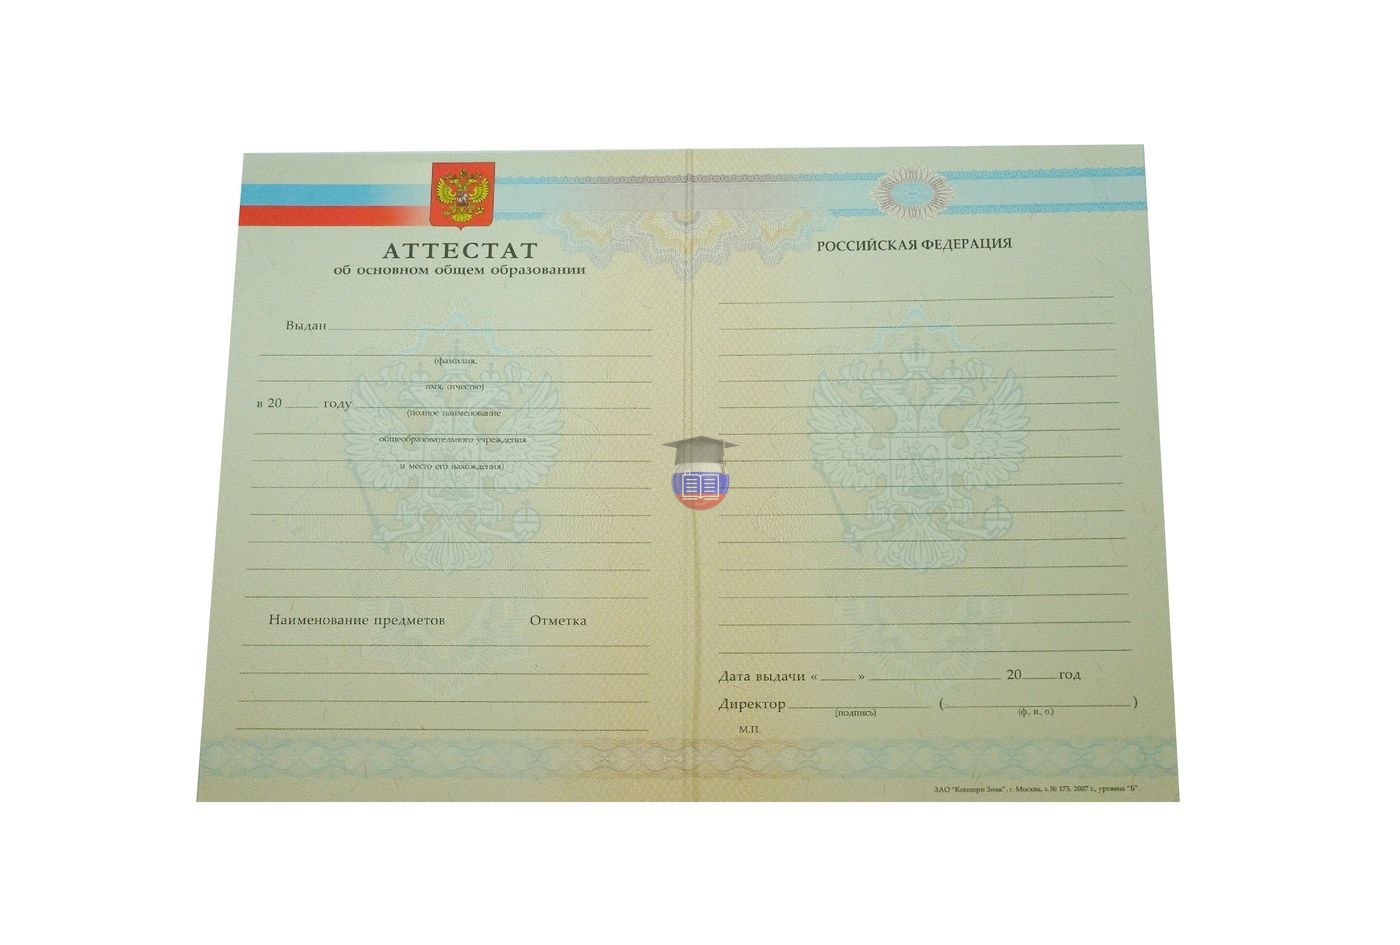 АТТЕСТАТ
об основном общем образовании
Выдан
(фамилия,
имя, отчество)
в 20 году
(полное наименование
общеобразовательного учреждения
и место его нахождения)
Наименование предметов Отметка
РОССИЙСКАЯ ФЕДЕРАЦИЯ
Дата выдачи « » 20 год
Директор ( )
(подпись) (ф., и., о.)
М.П.
ЗАО "Концерн Знак", г. Москва, з.№ 173, 2007 г., уровень "Б".